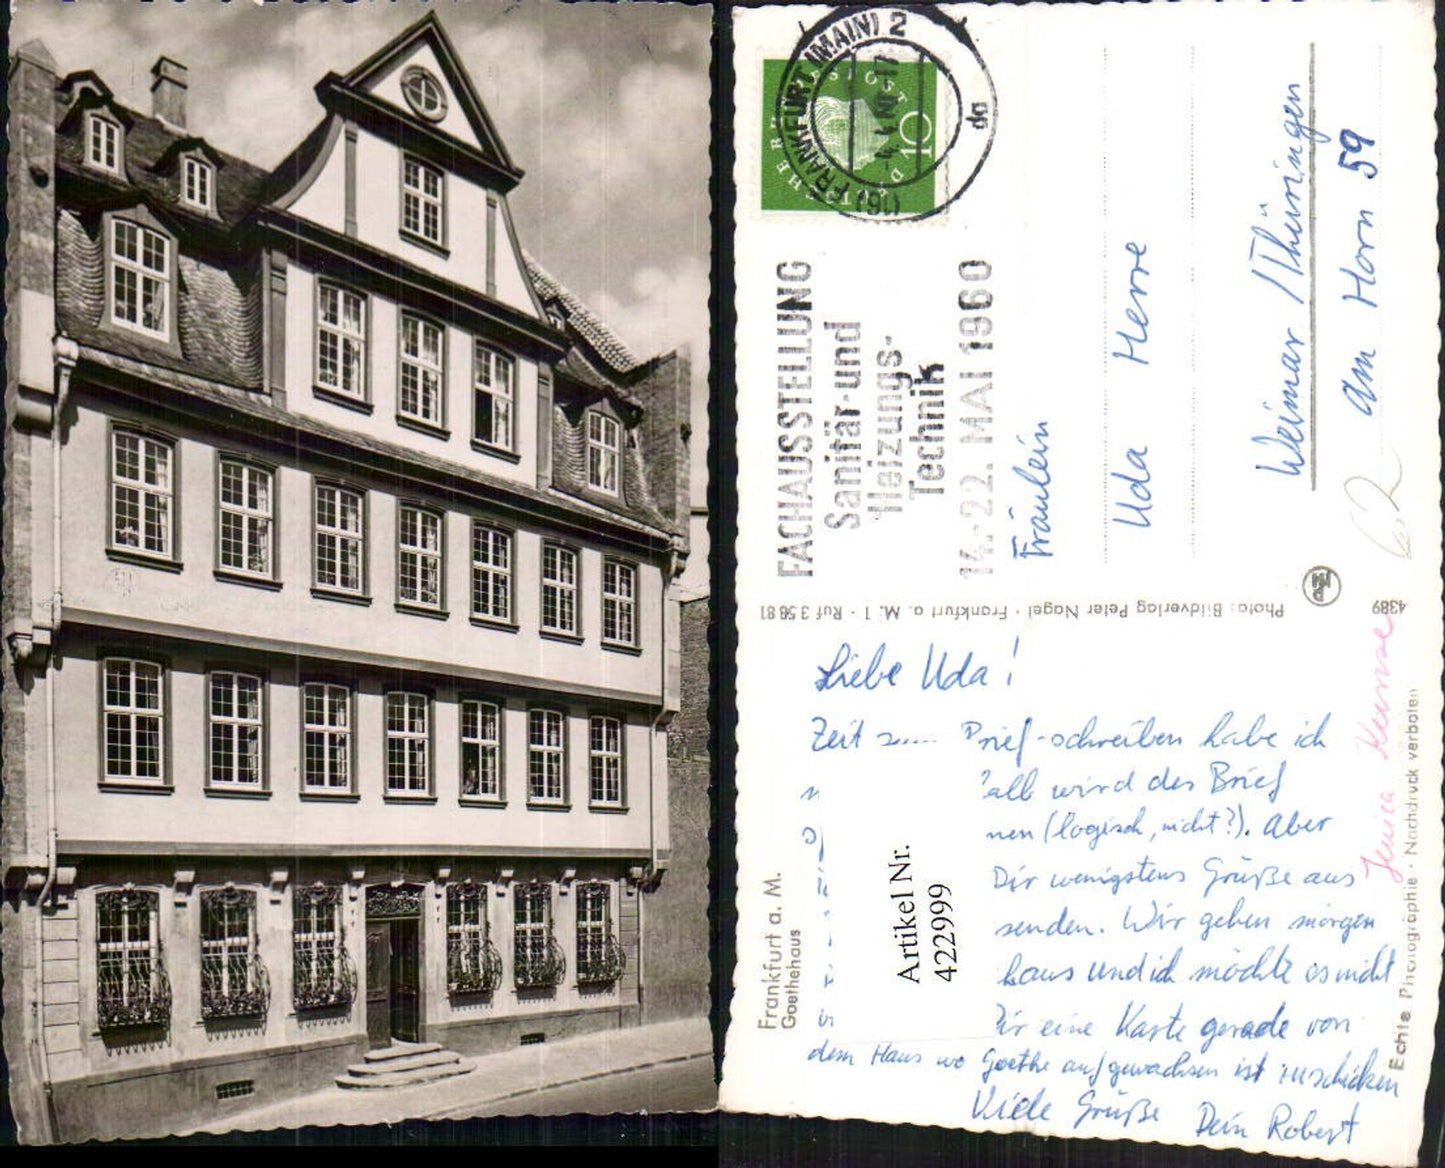 (16) FRANKFURT (MAIN) 2
da
DEUTSCHE BUNDESPOST
10
FACHAUSSTELLUNG
Sanitär-und
Heizungs-
Technik
14.-22. MAI 1960
Fräulein
Uda Herre
Weimar / Thüringen
am Horn 59
62
Photo: Bildverlag Peter Nagel · Frankfurt a. M. 1 · Ruf 3 56 81
4389
Liebe Uda!
Zeit Brief-schreiben habe ich
wird der Brief
(logisch, nicht?). Aber
Dir wenigstens Grüße aus
senden. Wir gehen morgen
haus und ich möchte es nicht
Dir eine Karte gerade von
dem Haus wo Goethe aufgewachsen ist zu schicken
Viele Grüße Dein Robert
Artikel Nr.
4229999
Frankfurt a. M.
Goethehaus
Echte Photographie · Nachdruck verboten